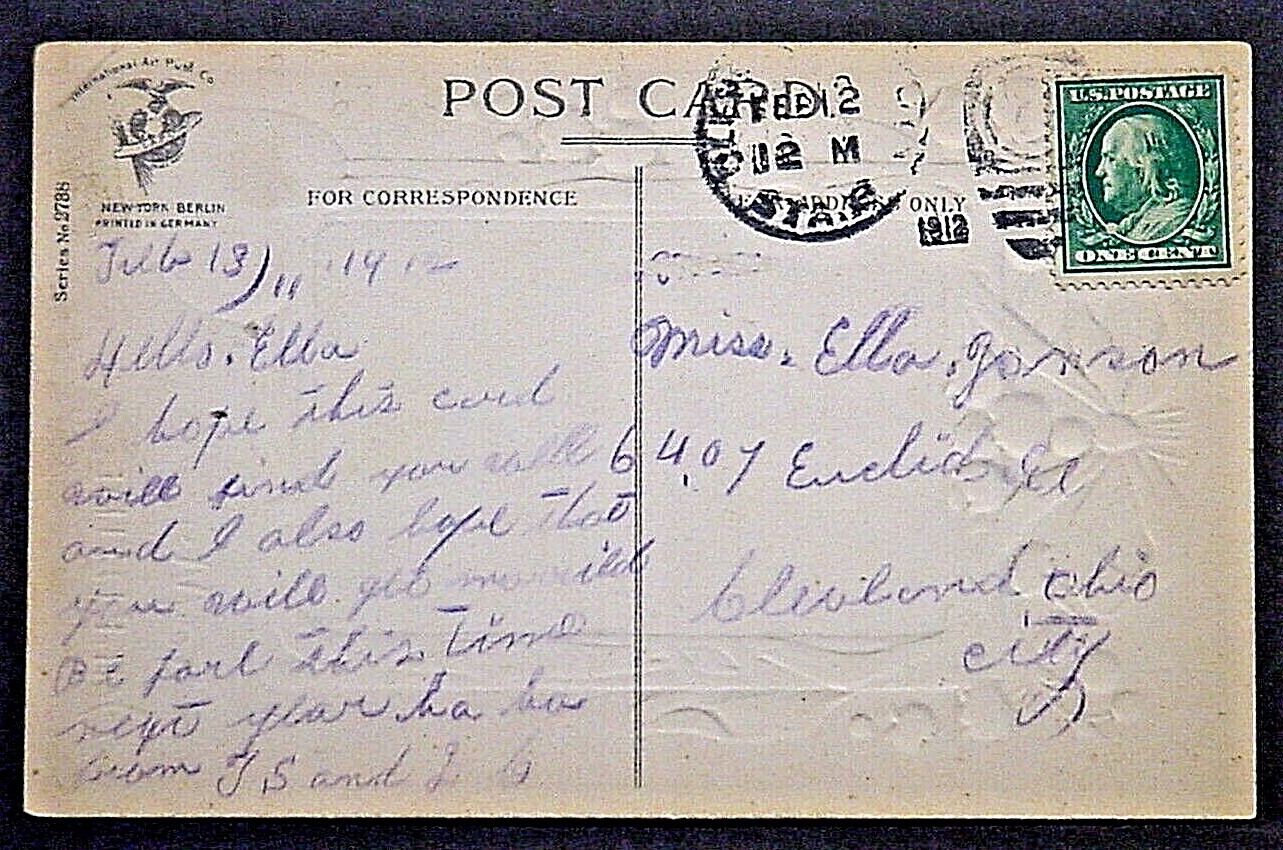 International Art Publ. Co.
NEW YORK BERLIN
PRINTED IN GERMANY
Series No. 2788
POST CARD
FOR CORRESPONDENCE
ONLY
FEB 12
12 M
STA.
1912
U.S. POSTAGE
ONE CENT
Feb 13 ,, 1912
Hello. Ella
I hope this card
will find you well
and I also hope that
you will get married
Be fore this time
next year ha ha
From T S and
Miss. Ella. Jonson
6407 Euclid
Clevland, Ohio
city